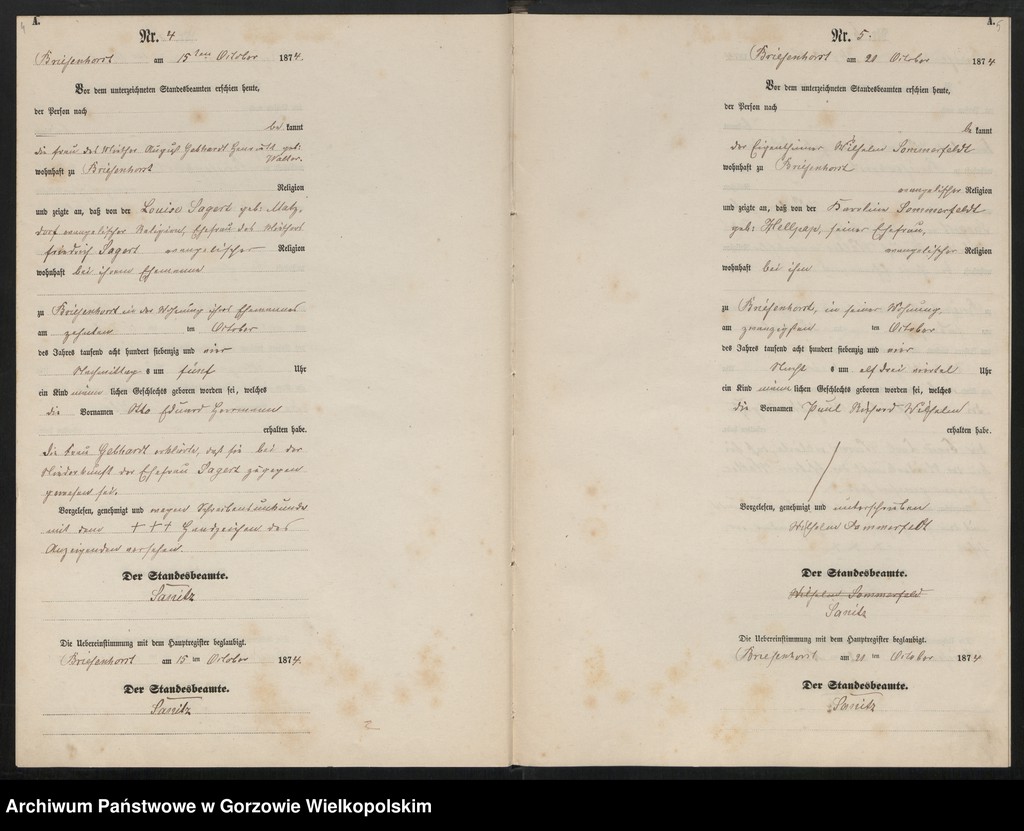 A.
4
Nr. 4
Briesenhorst am 15ten October 1874.
Vor dem unterzeichneten Standesbeamten erschien heute,
der Person nach
be kannt
die Frau des August Gebhardt geb:
Walter.
wohnhaft zu Briesenhorst
Religion
und zeigte an, daß von der Louise Sagert geb: Matz-
dorf evangelischer Religion, Ehefrau des
Friedrich Sagert evangelischer Religion
wohnhaft bei ihrem Ehemanne
zu Briesenhorst in der Wohnung ihres Ehemannes
am zehnten ten October
des Jahres tausend acht hundert siebenzig und vier
Nachmittag s um fünf Uhr
ein Kind männ lichen Geschlechts geboren worden sei, welches
die Vornamen Otto Eduard Herrmann
erhalten habe.
Die Frau Gebhardt erklärte, daß sie bei der
Niederkunft der Ehefrau Sagert zugegen
gewesen sei.
Vorgelesen, genehmigt und wegen Schreibensunkunde
mit dem +++ Handzeichen des
Anzeigenden versehen.
Der Standesbeamte.
Sanitz
Die Uebereinstimmung mit dem Hauptregister beglaubigt.
Briesenhorst am 15 ten October 1874.
Der Standesbeamte.
Sanitz
2
A.
5
Nr. 5.
Briesenhorst am 20 October 1874
Vor dem unterzeichneten Standesbeamten erschien heute,
der Person nach
be kannt
der Eigenthümer Wilhelm Sommerfeldt
wohnhaft zu Briesenhorst
evangelischer Religion
und zeigte an, daß von der Karoline Sommerfeldt
geb: Hellpap, seiner Ehefrau,
evangelischer Religion
wohnhaft bei ihm
zu Briesenhorst, in seiner Wohnung
am zwanzigsten ten October
des Jahres tausend acht hundert siebenzig und vier
Nacht s um elf drei viertel Uhr
ein Kind männ lichen Geschlechts geboren worden sei, welches
die Vornamen Paul Richard Wilhelm
erhalten habe.
Vorgelesen, genehmigt und unterschrieben
Wilhelm Sommerfeldt
Der Standesbeamte.
Wilhelm Sommerfeld
Sanitz
Die Uebereinstimmung mit dem Hauptregister beglaubigt.
Briesenhorst am 20 ten October 1874
Der Standesbeamte.
Sanitz
Archiwum Państwowe w Gorzowie Wielkopolskim